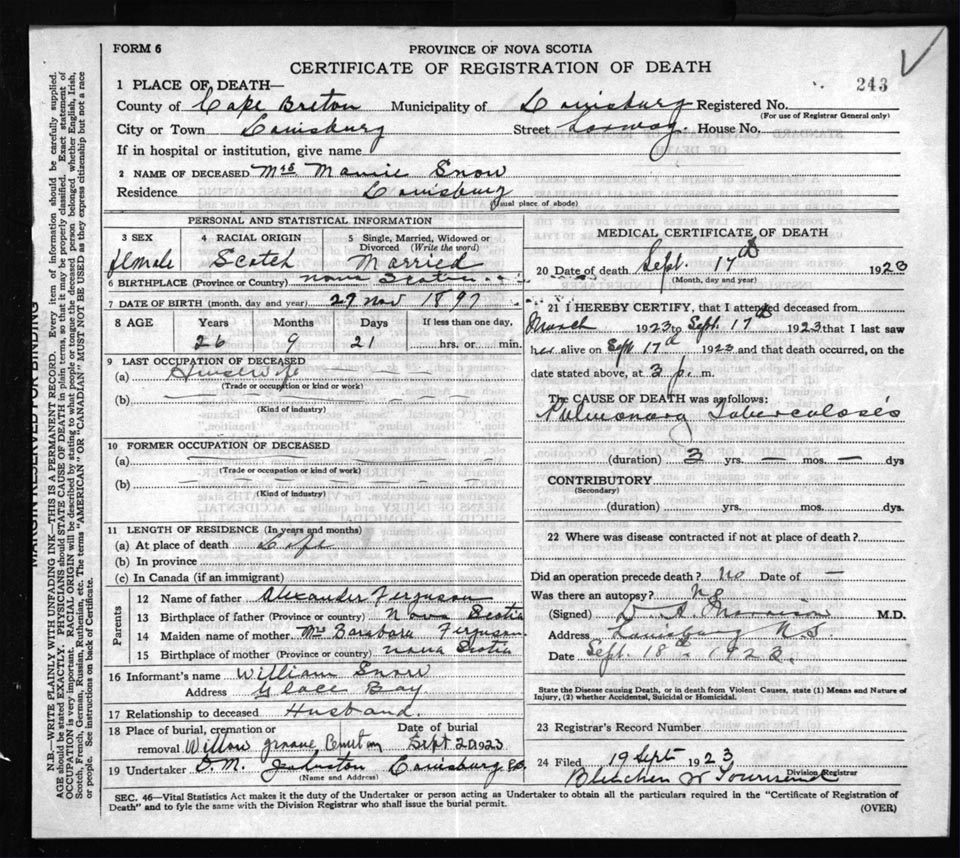 FORM 6
PROVINCE OF NOVA SCOTIA
CERTIFICATE OF REGISTRATION OF DEATH
243
1 PLACE OF DEATH—
County of Cape Breton Municipality of Louisburg Registered No.
(For use of Registrar General only)
City or Town Louisburg Street Lorway House No.
If in hospital or institution, give name
2 NAME OF DECEASED Mrs Mamie Snow
Residence Louisburg
(Usual place of abode)
PERSONAL AND STATISTICAL INFORMATION
3 SEX
female
4 RACIAL ORIGIN
Scotch
5 Single, Married, Widowed or Divorced (Write the word)
Married
6 BIRTHPLACE (Province or Country) Nova Scotia
7 DATE OF BIRTH (month, day and year) 27 Nov 1897
8 AGE
Years Months Days If less than one day,
26 9 21 hrs. or min.
9 LAST OCCUPATION OF DECEASED
(a) Housewife
(Trade or occupation or kind or work)
(b)
(Kind of industry)
10 FORMER OCCUPATION OF DECEASED
(a)
(Trade or occupation or kind of work)
(b)
(Kind of industry)
11 LENGTH OF RESIDENCE (In years and months)
(a) At place of death Life
(b) In province
(c) In Canada (if an immigrant)
Parents
12 Name of father Alexander Ferguson
13 Birthplace of father (Province or country) Nova Scotia
14 Maiden name of mother Mrs Barabara Ferguson
15 Birthplace of mother (Province or country) Nova Scotia
16 Informant's name William Snow
Address Glace Bay
17 Relationship to deceased Husband.
18 Place of burial, cremation or Date of burial
removal Willow Groave Cemetary Sept 20 1923
19 Undertaker Johnston Louisburg
(Name and Address)
MEDICAL CERTIFICATE OF DEATH
20 Date of death Sept. 17th 1923
(Month, day and year)
21 I HEREBY CERTIFY, that I attended deceased from
March 1923 to Sept. 17th 1923 that I last saw
her alive on Sept 17th 1923 and that death occurred, on the
date stated above, at 3 p. m.
The CAUSE OF DEATH was as follows:
Pulmonary Tuberculosis
(duration) 3 yrs. — mos. — dys
CONTRIBUTORY
(Secondary)
(duration) yrs. mos. dys.
22 Where was disease contracted if not at place of death?
Did an operation precede death? No Date of —
Was there an autopsy? No
(Signed) D A Morrison M.D.
Address Louisburg N.S.
Date Sept. 18th 1923.
State the Disease causing Death, or in death from Violent Causes, state (1) Means and Nature of
Injury, (2) whether Accidental, Suicidal or Homicidal.
23 Registrar's Record Number
24 Filed 19 Sept 1923
W Townsend
Division Registrar
SEC. 46—Vital Statistics Act makes it the duty of the Undertaker or person acting as Undertaker to obtain all the particulars required in the "Certificate of Registration of
Death" and to fyle the same with the Division Registrar who shall issue the burial permit.
(OVER)
MARGIN RESERVED FOR BINDING
N.B.—WRITE PLAINLY WITH UNFADING INK—THIS IS A PERMANENT RECORD. Every item of information should be carefully supplied.
AGE should be stated EXACTLY. PHYSICIANS should STATE CAUSE OF DEATH in plain terms, so that it may be properly classified. Exact statement of
OCCUPATION is very important. RACIAL ORIGIN will be described by stating to what people or tongue the deceased person belonged whether English, Irish,
Scotch, French, German, Russian, Ruthenian, etc. The terms "AMERICAN" OR "CANADIAN" MUST NOT BE USED as they express citizenship but not a race
or people. See instructions on back of Certificate.